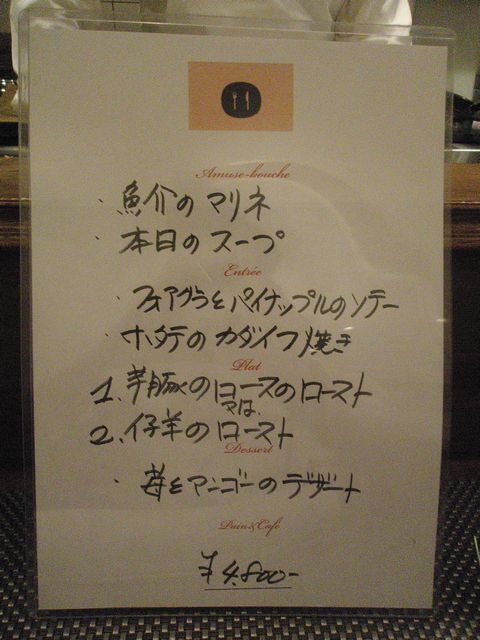 Amuse-bouche
・魚介のマリネ
・本日のスープ
Entrée
・フォアグラとパイナップルのソテー
・ホタテのカダイフ焼き
Plat
1. 芋豚のロースのロースト
マタは、
2. 仔羊のロースト
Dessert
・苺とマンゴーのデザート
Pain&Café
¥4,800-